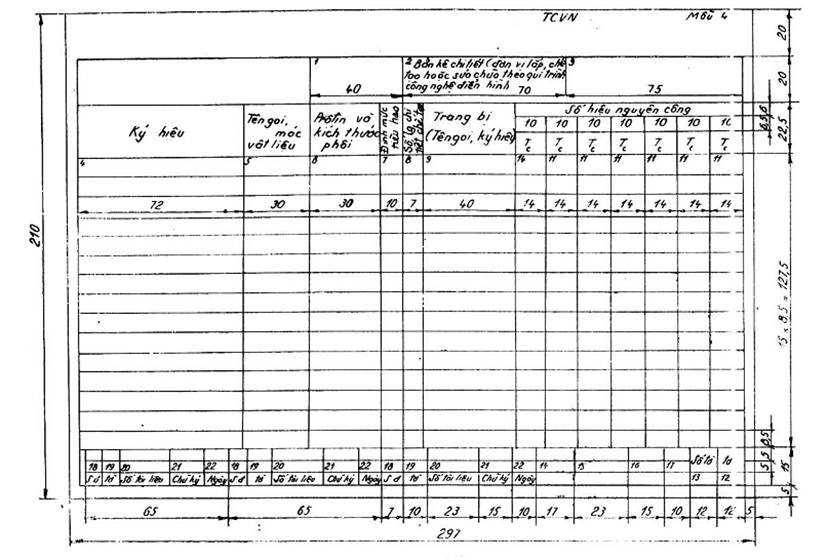 TCVN
Mẫu 4
20
1
2 Bản kê chi tiết (đơn vị lắp, chế
tạo hoặc sửa chữa theo qui trình
công nghệ điển hình
3
40
70
75
20
Ký hiệu
Tên gọi,
mác
vật liệu
Prôfin và
kích thước
phôi
Định mức
tiêu hao
Trang bị
(Tên gọi, ký hiệu)
Số hiệu nguyên công
10 10 10 10 10 10 10
Tc Tc Tc Tc Tc Tc Tc
6,5
22,5
4 5 6 7 8 9 14 11 11 11 11 11 11
72 30 30 10 7 40 14 14 14 14 14 14 14
210
15 x 8,5 = 127,5
8,5
Số tờ tờ
18 19 20 21 22 18 19 20 21 22 18 19 20 21 22 14 15 16 17
Sđ tờ Số tài liệu Chữ ký Ngày Sđ tờ Số tài liệu Chữ ký Ngày Sđ tờ Số tài liệu Chữ ký Ngày 13 12
5 5 15
5
65 65 7 10 23 15 10 17 23 15 10 12 12 5
297